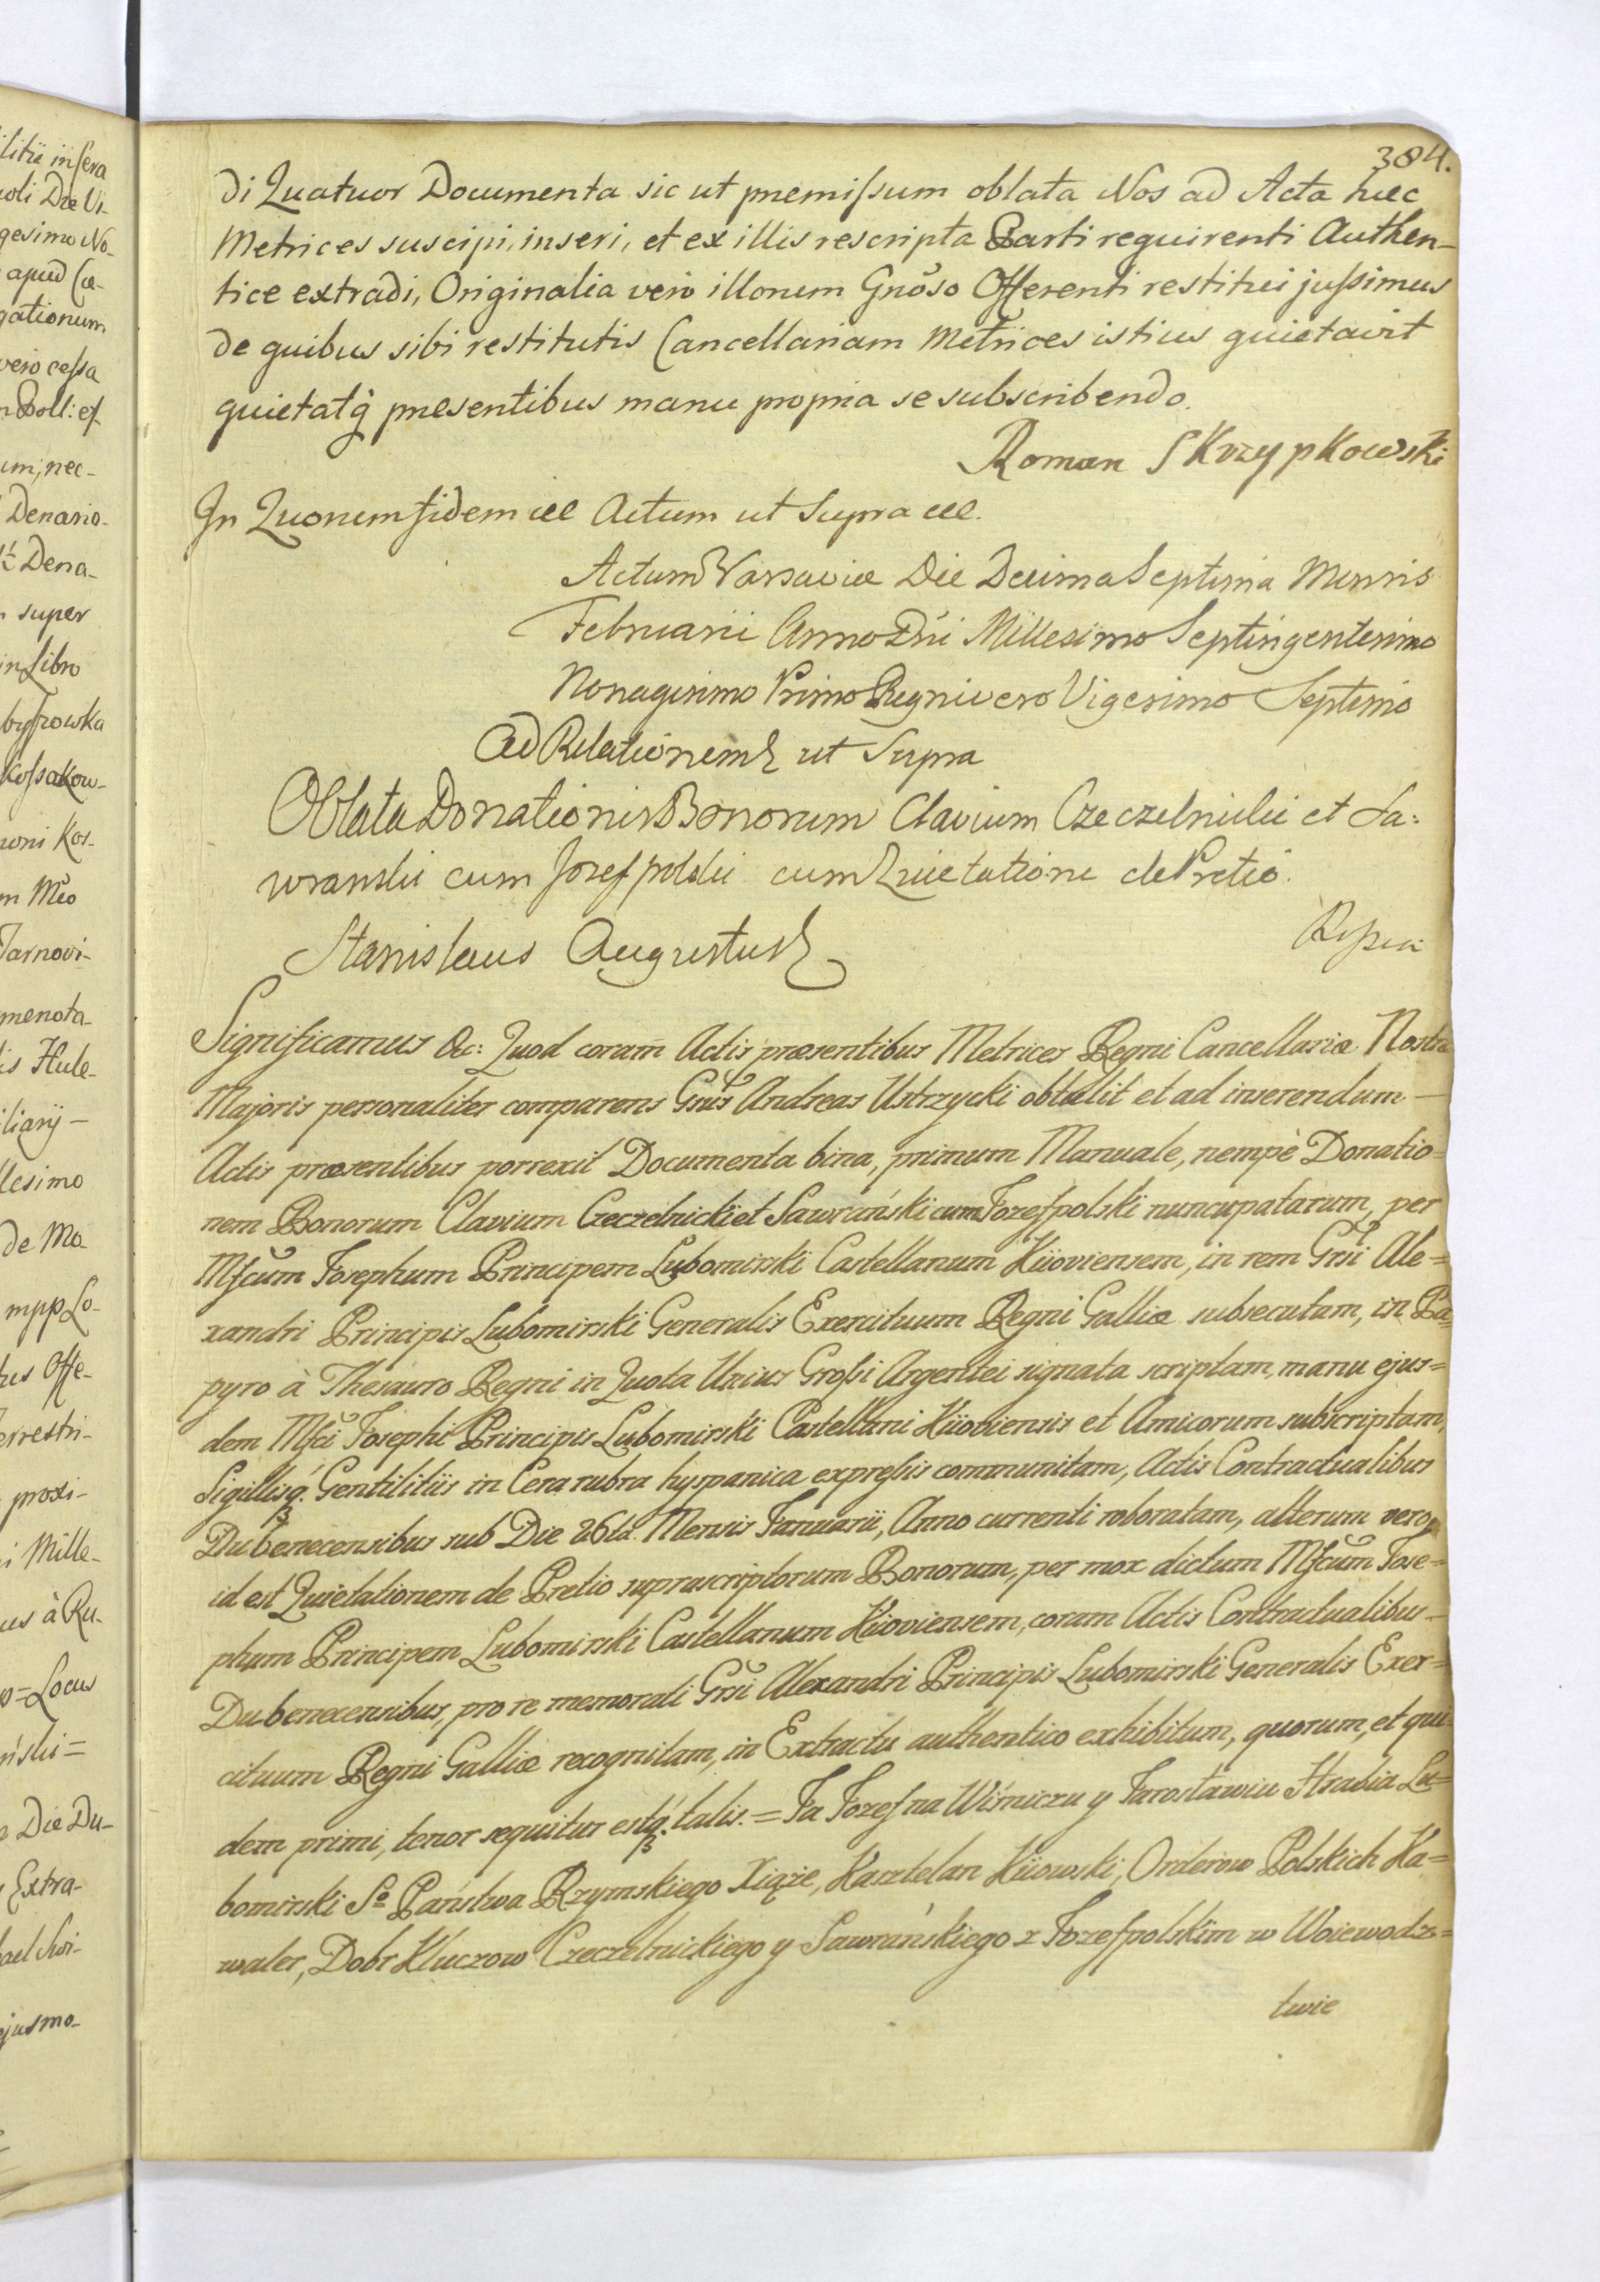 384.
di Quatuor Documenta sic ut premissum oblata Nos ad Acta hæc
Metrices suscipi, inseri, et ex illis rescripta Parti requirenti Authen-
tice extradi, Originalia vero illorum Gnõso Offerenti restitui jussimus
de quibus sibi restitutis Cancellariam Metrices istius quietavit
quietatq́ præsentibus manu propria se subscribendo.
Roman Skrzypkowski
In Quorum fidem Actum ut Supra
Actum Varsaviæ Die Decima Septima Mensis
Februarii Anno Dńi Millesimo Septingentesimo
Nonagesimo Primo Regni vero Vigesimo Septimo
Ad Relationem ut Supra
Oblata Donationis Bonorum Clavium Czeczelnicki et Sa:
wranski cum Jozefpolski cum Quietatione de Pretio.
Stanislaus Augustus
Significamus &c: Quod coram Actis præsentibus Metrices Regni Cancellariæ Nostræ
Majoris personaliter comparens Andreas Ustrzycki obtulit et ad inserendum —
Actis præsentibus porrexit Documenta bina, primum Manuale, nempè Donatio=
nem Bonorum Clavium Czeczelnicki et Sawrański cum Jozefpolski nuncupatarum, per
Mfcũm Josephum Principem Lubomirski Castellanum Kiioviensem, in rem Grsĩ Ale=
xandri Principis Lubomirski Generalis Exercituum Regni Galliæ subsecutam, in Pa=
pyro à Thesauro Regni in Quota Unius Grossi Argentei signata scriptam, manu ejus=
dem Mfcĩ Josephi Principis Lubomirski Castellani Kiioviensis et Amicorum subscriptam,
Sigillisq́. Gentilitiis in Cera rubra hyspanica expressis communitam, Actis Contractualibus
Dubenecensibus sub Die 26ta Mensis Januarii, Anno currenti roboratam, alterum vero
id est Quietationem de Pretio suprascriptorum Bonorum, per mox dictum Mfcũm Jose=
phum Principem Lubomirski Castellanum Kiioviensem, coram Actis Contractualibus—
Dubenecensibus, pro re memorati Grsĩ Alexandri Principis Lubomirski Generalis Exer=
cituum Regni Galliæ recognitam, in Extractu authentico exhibitum, quorum, et qui=
dem primi, tenor sequitur estq́. talis. = Ja Jozef na Wiśniczu y Jarosławiu Hrabia Lu=
bomirski So Państwa Rzymskiego Xiąże, Kasztelan Kiiowski, Orderow Polskich Ka=
waler, Dobr Kluczow Czeczelnickiego y Sawrańskiego z Jozefpolskim w Woiewodz=
twie